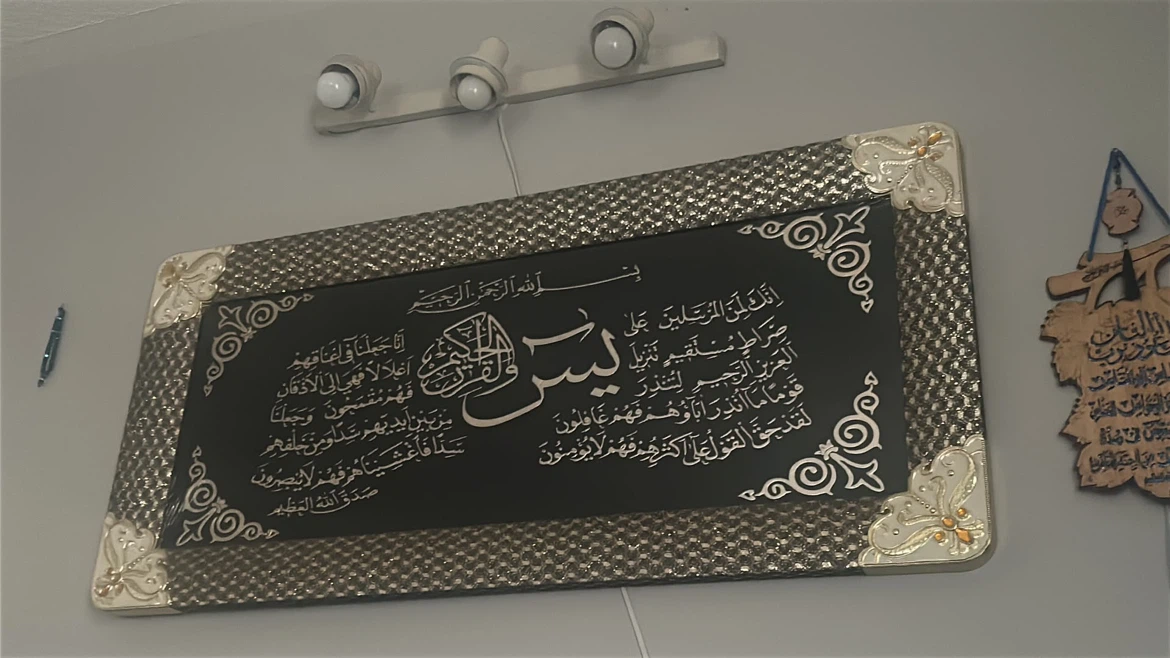 بسم الله الرحمن الرحيم
يس والقرآن الحكيم
إنك لمن المرسلين على
صراط مستقيم تنزيل
العزيز الرحيم لتنذر
قوما ما أنذر آباؤهم فهم غافلون
لقد حق القول على أكثرهم فهم لا يؤمنون
إنا جعلنا في أعناقهم
أغلالا فهي إلى الأذقان
فهم مقمحون وجعلنا
من بين أيديهم سدا ومن خلفهم
سدا فأغشيناهم فهم لا يبصرون
صدق الله العظيم